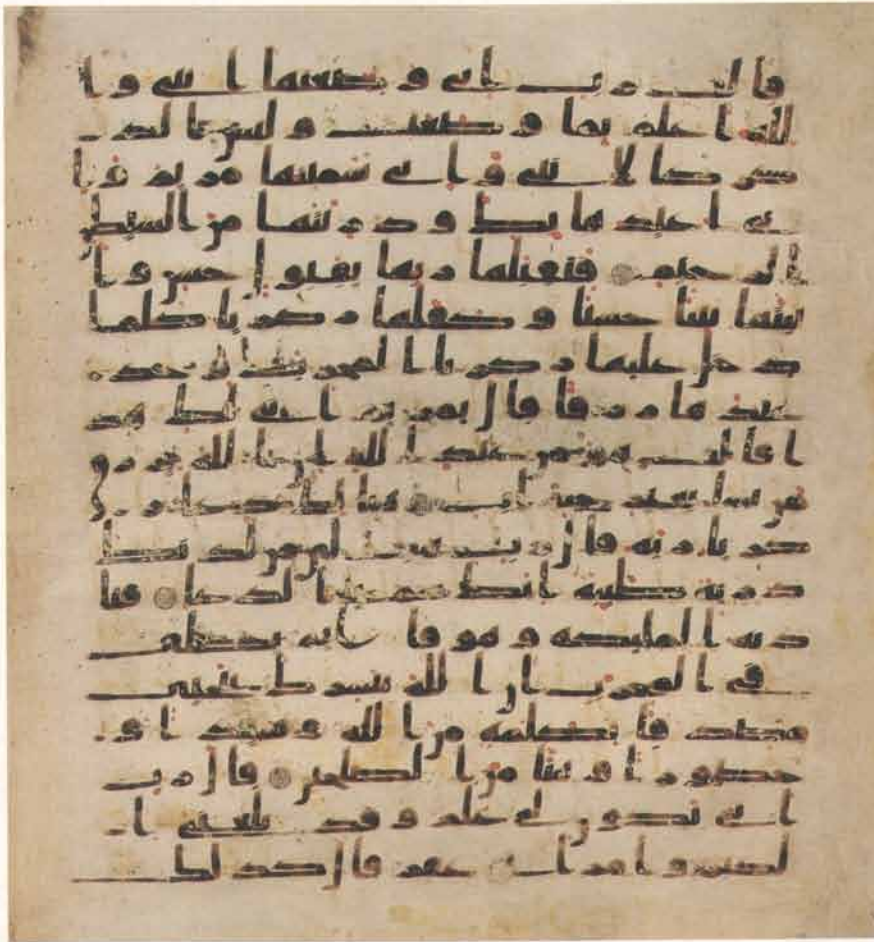 قالت رب اني وضعتها انثى وا
لله اعلم بما وضعت وليس الذ
كر كالانثى واني سميتها مريم وا
ني اعيذها بك وذريتها من الشيطن
الرجيم فتقبلها ربها بقبول حسن وا
نبتها نباتا حسنا وكفلها زكريا كلما
دخل عليها زكريا المحراب وجد
عندها رزقا قال يمريم انى لك هذ
ا قالت هو من عند الله ان الله يرز
ق من يشا بغير حساب هنالك دعا ز
كريا ربه قال رب هب لي من لدنك
ذرية طيبة انك سميع الدعا فنا
دته الملئكة وهو قايم يصلي
في المحراب ان الله يبشرك بيحيى
مصدقا بكلمة من الله وسيدا و
حصورا ونبيا من الصلحين قال رب
انى يكون لي غلم وقد بلغني ا
لكبر وامراتي عاقر قال كذلك